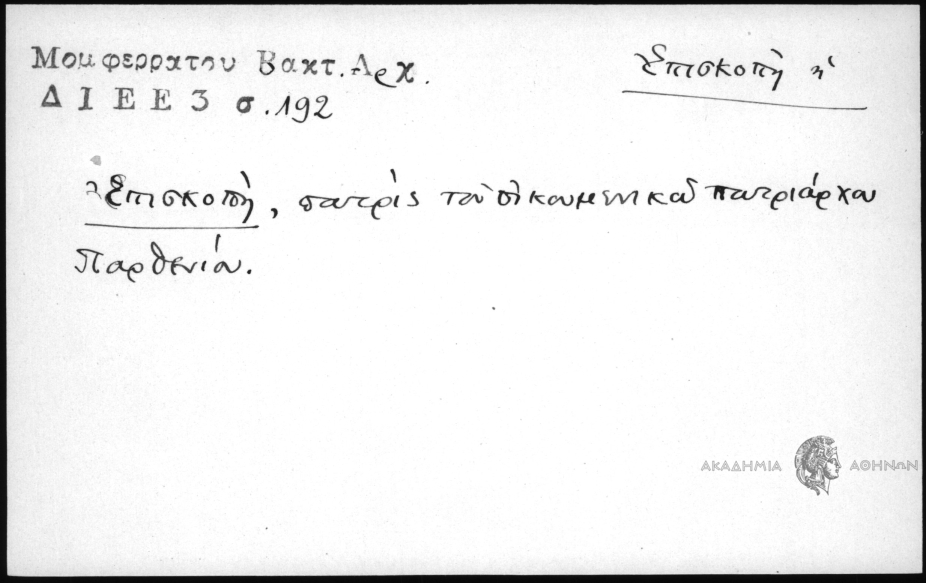 Μομφερρατου Βακτ. Αρχ.
Ἐπισκοπὴ ἡ
ΔΙΕΕ 3 σ. 192
Ἐπισκοπὴ, πατρὶς τοῦ οἰκουμενικοῦ πατριάρχου
Παρθενίου.
ΑΚΑΔΗΜΙΑ ΑΘΗΝΩΝ